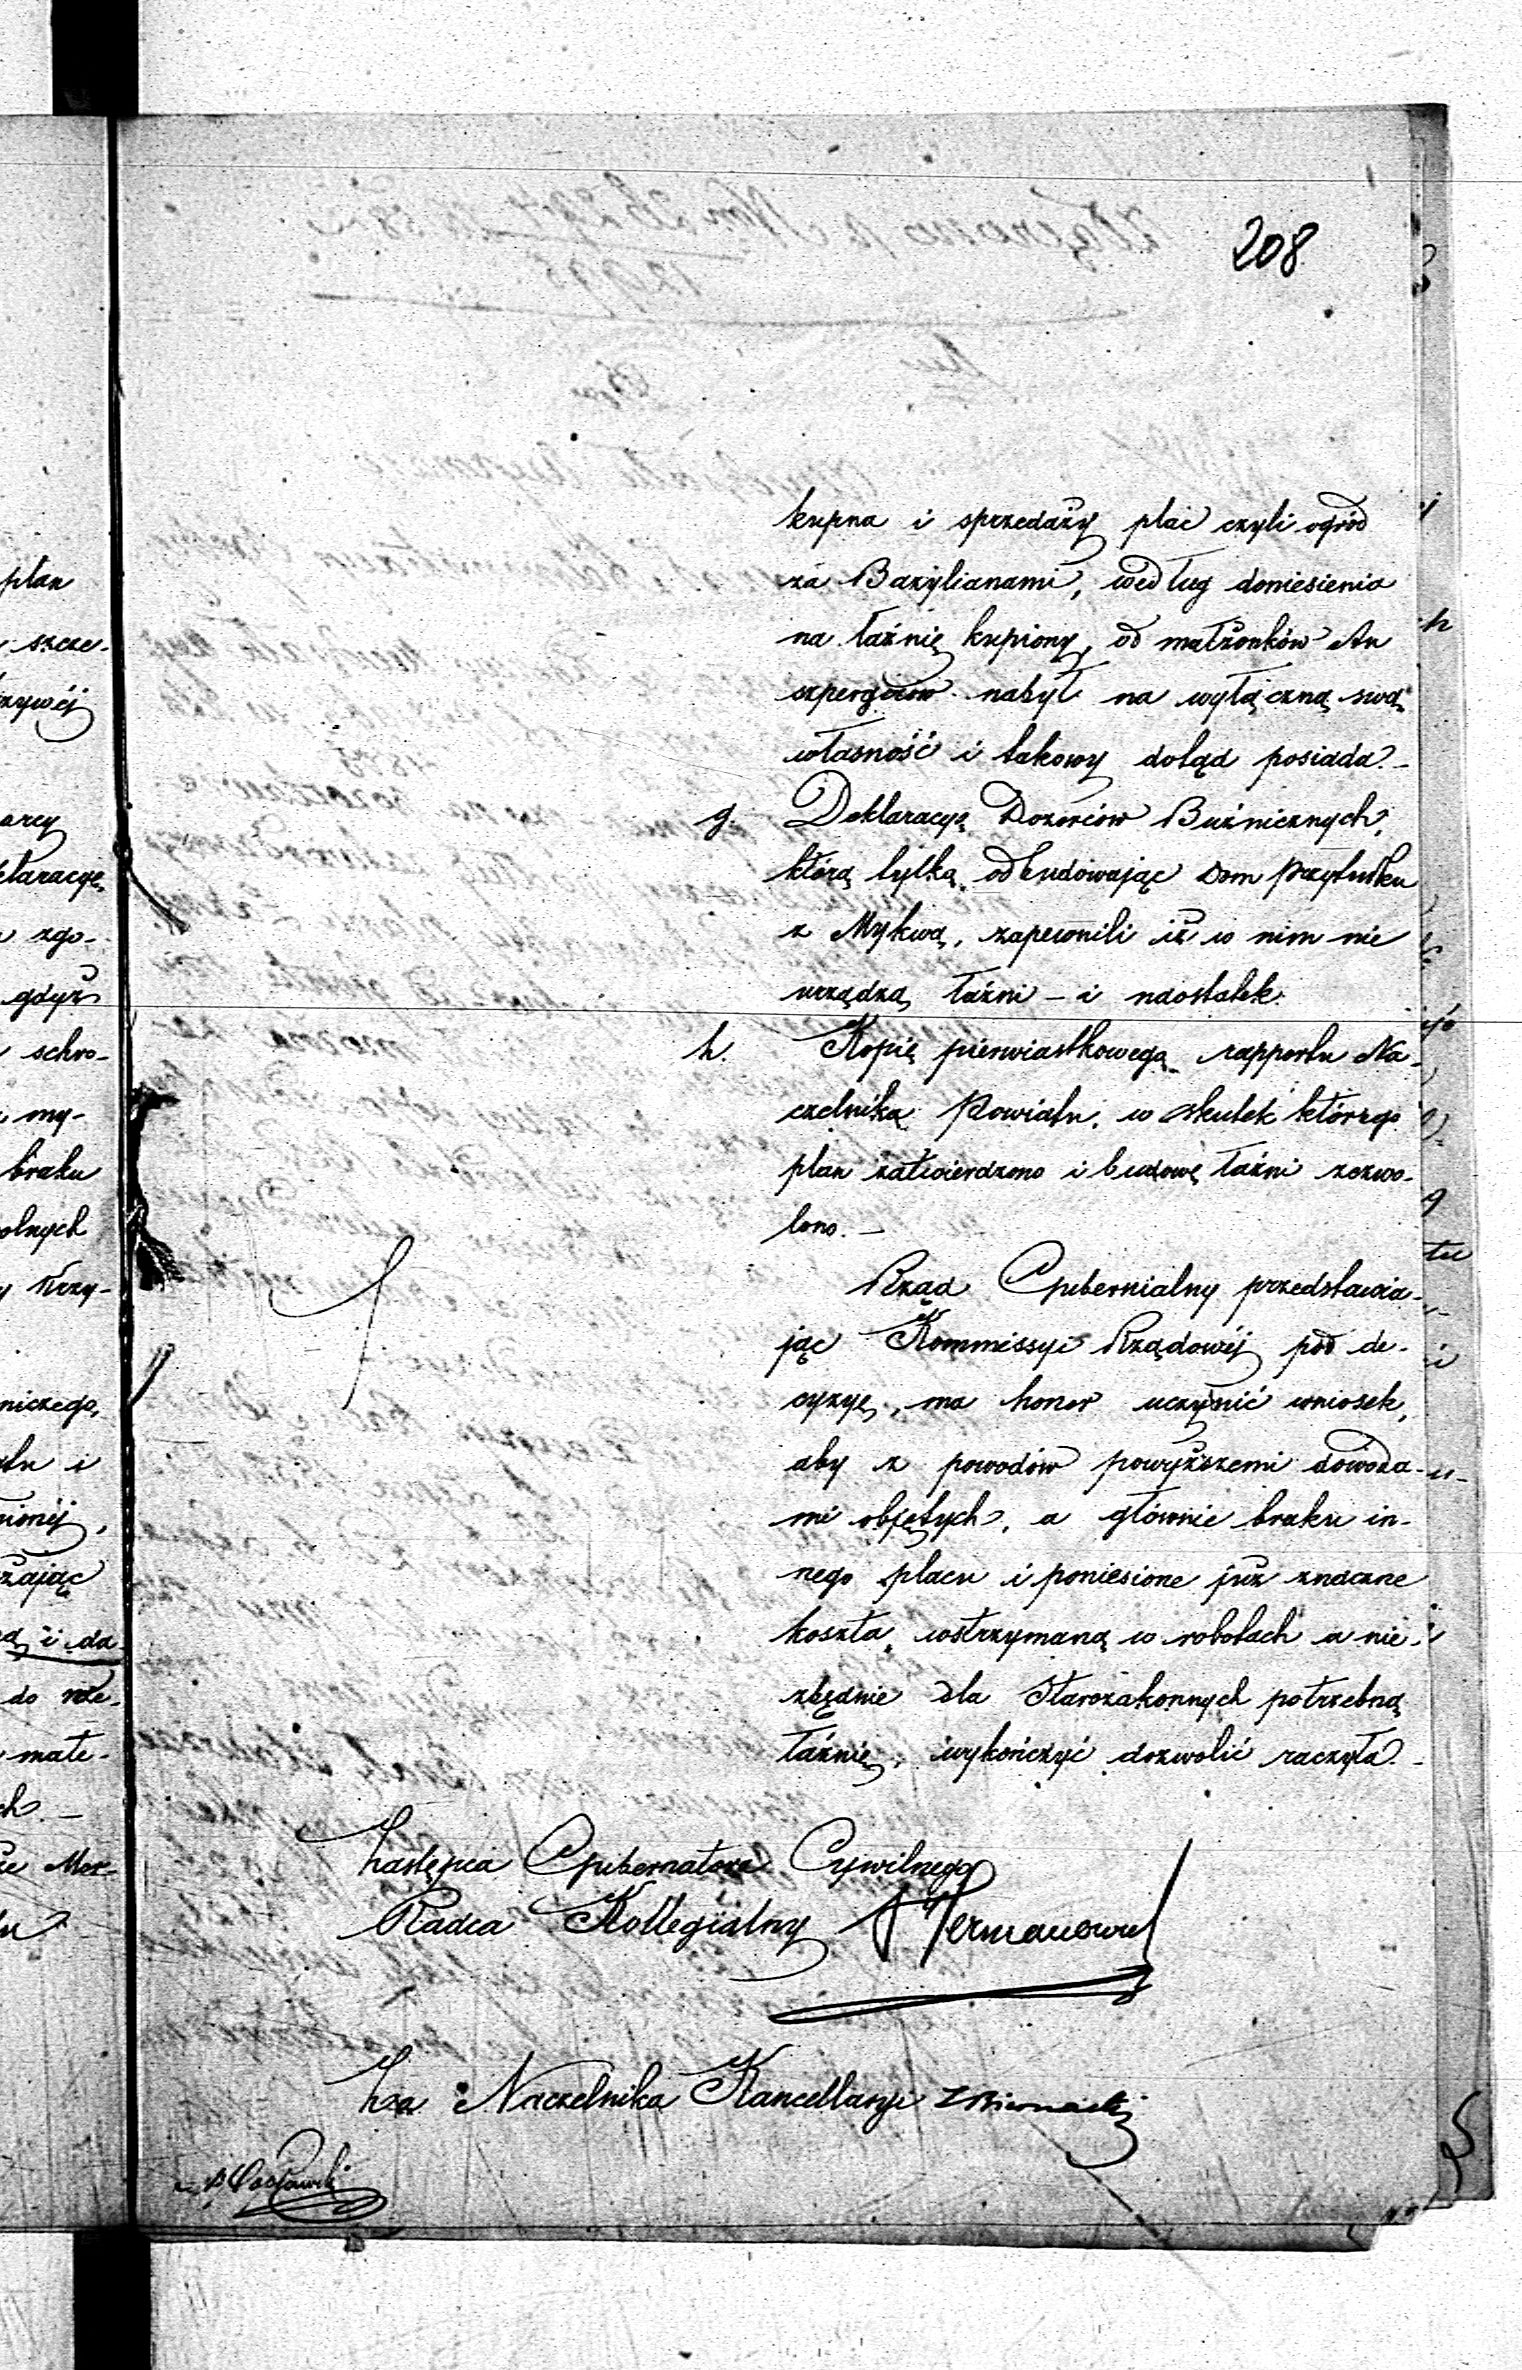 208
kupna i sprzedaży plac czyli ogród
za Bazylianami, według doniesienia
na łaźnię kupiony, od małżonków An
szpergerów nabył na wyłączną swą
własność i takowy dotąd posiada.-
g. Deklaracyą Dozorców Buźnicznych,
którą tylką odbudowając dom przytułku
z Mykwą, zapewnili iż w nim nie
urządzą łaźni – i naostatek.
h. Kopię pierwiastkowego rapportu Na-
czelnika Powiatu, w skutek którego
plan zatwierdzono i budowę łaźni zezwo-
lono. –
Rząd Gubernialny przedstawia-
jąc Kommissyi Rządowéj pod de-
cyzyę, ma honor uczynić wniosek,
aby z powodów powyższemi dowoda-
mi objętych, a głównie braku in-
nego placu i poniesione już znaczne
koszta wstrzymaną w robotach a nie-
zbędnie dla Starozakonnych potrzebną
łaźnię, wykończyć dozwolić raczyła. -
Zastępca Gubernatora Cywilnego
Radca Kollegialny
Za Naczelnika Kancellaryi
plan
szcze-
zgo-
gdyż
schro-
my-
braku
olnych
Krzy-
niczego,
i da
do
mate-